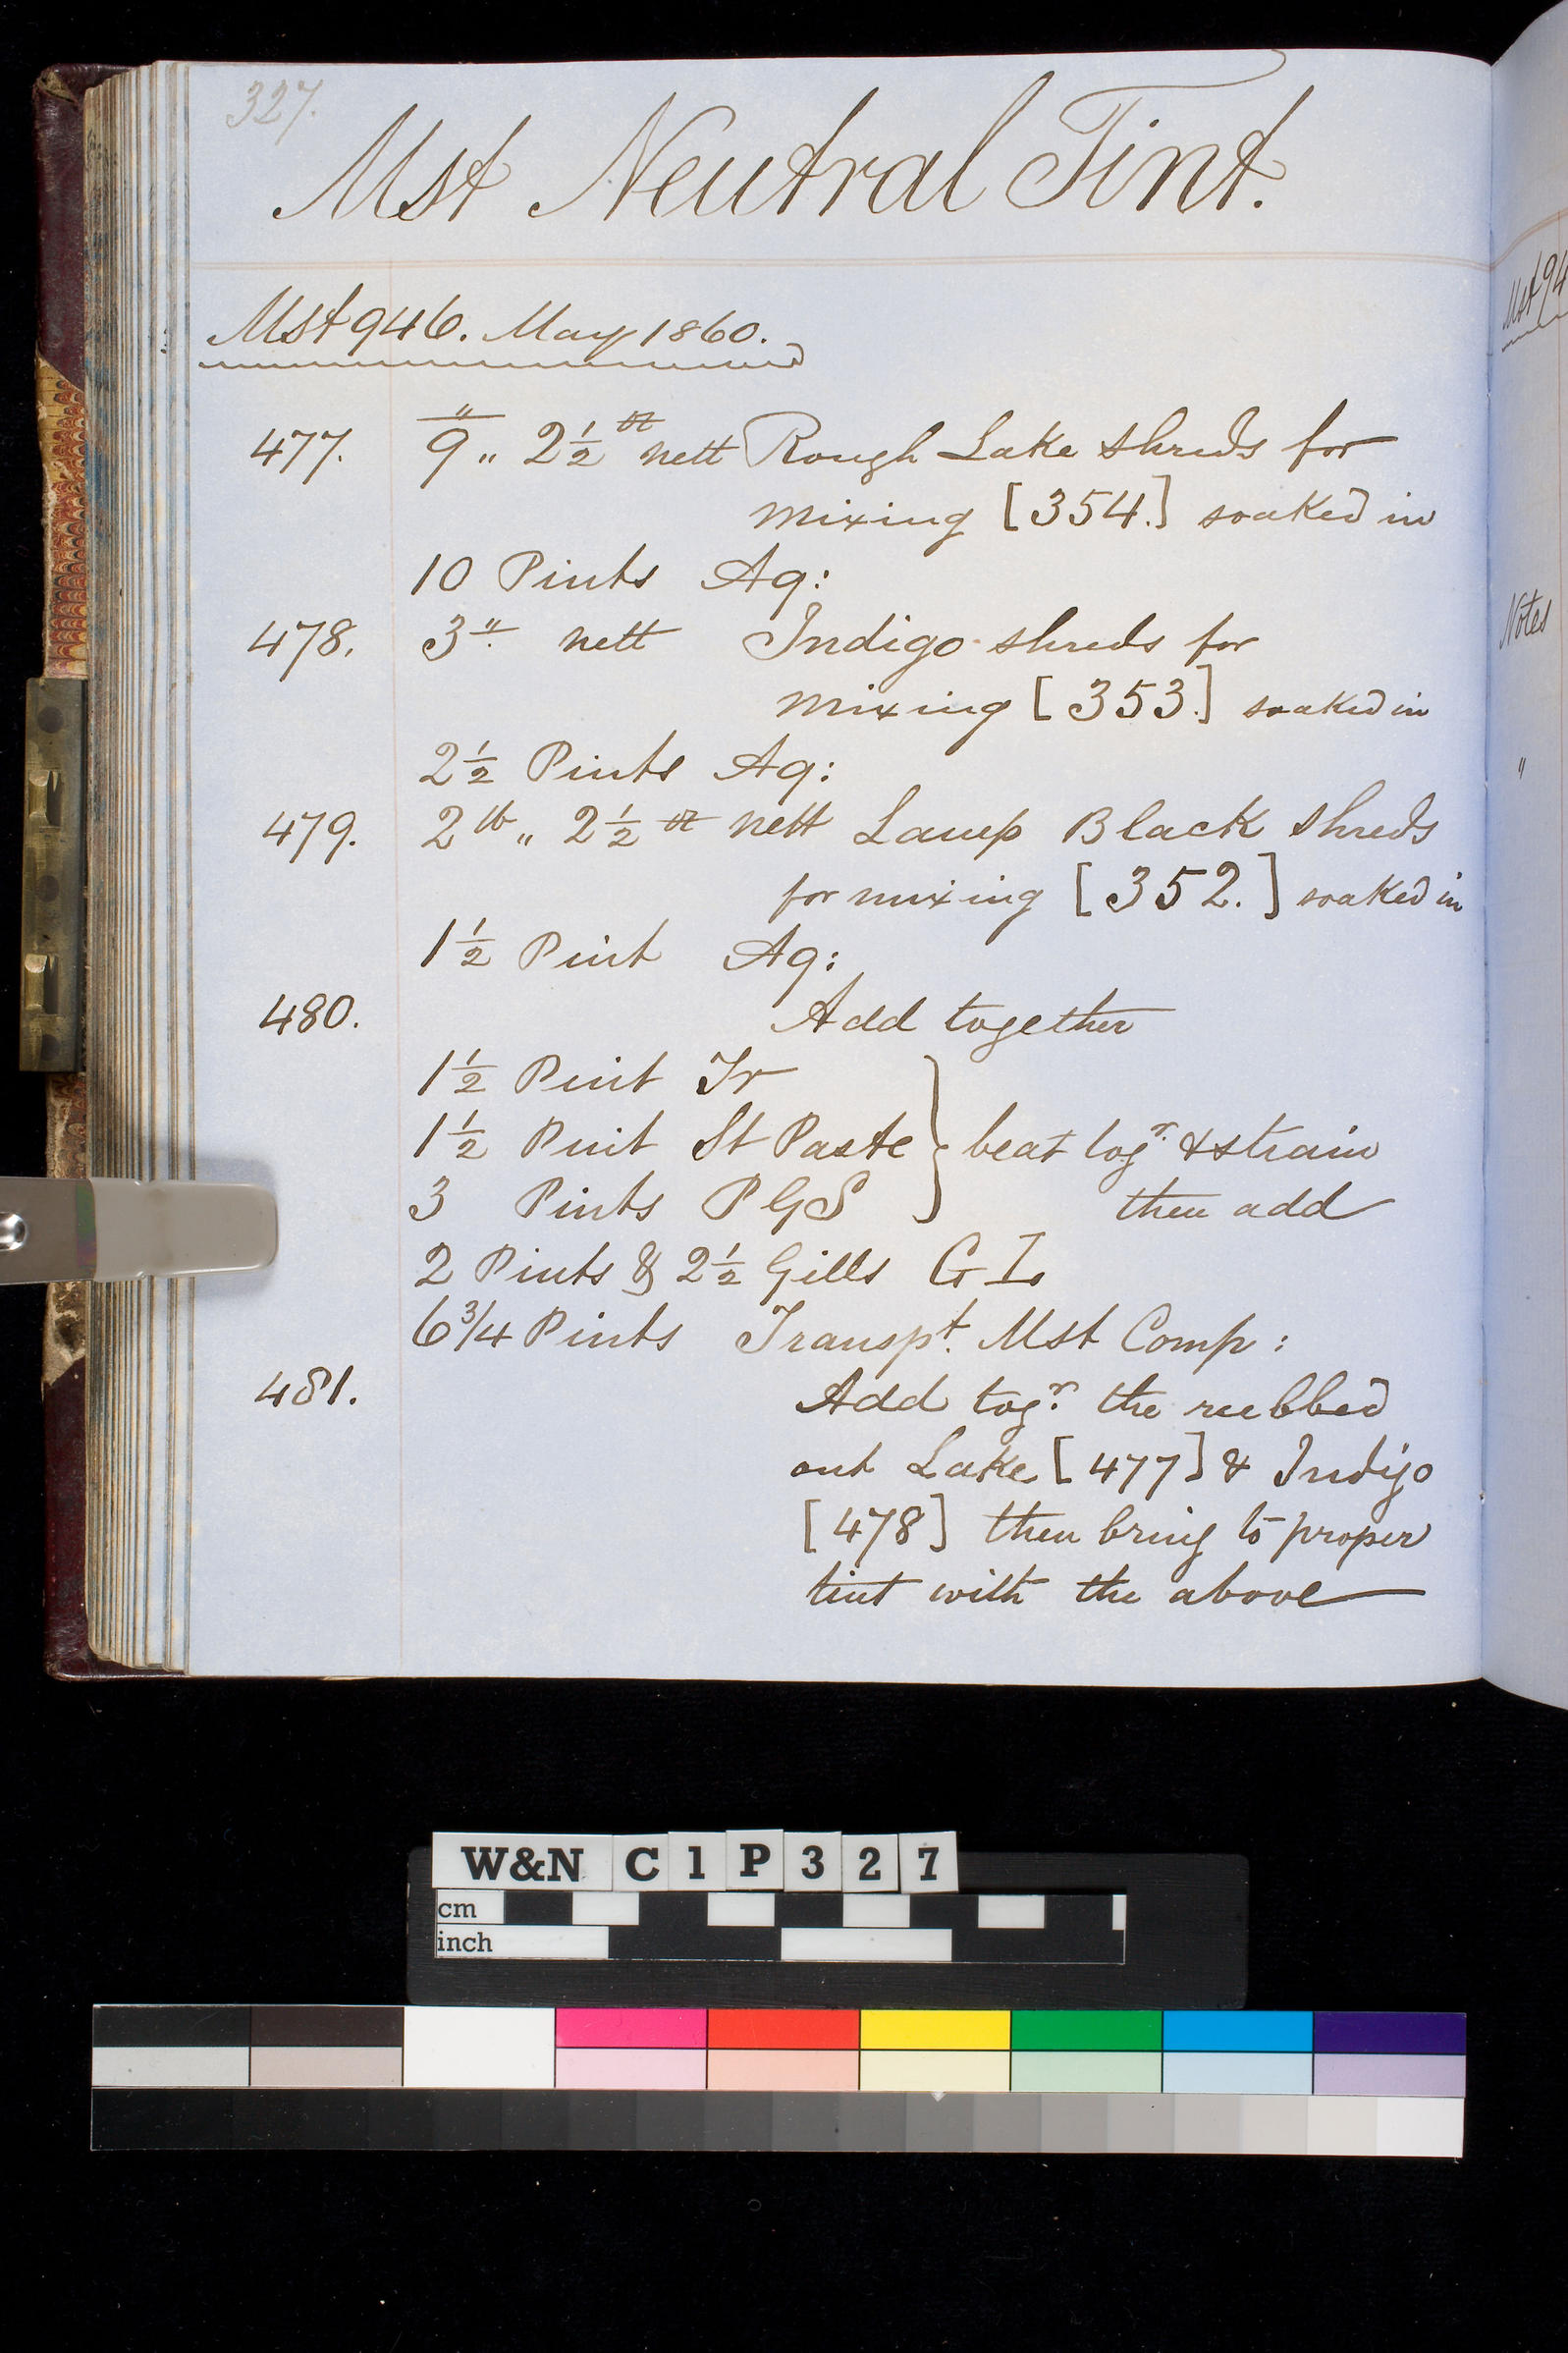 327.
Mst Neutral Tint.
Mst 946. May 1860.
477. 9 „ 2½ oz nett Rough Lake shreds for
mixing [354.] soaked in
10 Pints Aq:
478. 3 " nett Indigo shreds for
mixing [353.] soaked in
2½ Pints Aq:
479. 2 lb „ 2½ oz nett Lamp Black shreds
for mixing [352.] soaked in
1½ Pint Aq:
480. Add together
1½ Pint Tr
1½ Pint St Paste } beat togr. & strain
3 Pints PGS then add
2 Pints & 2½ Gills GL
6 3/4 Pints Transpt. Mst Comp:
481. Add togr. the rubbed
out Lake [477] & Indigo
[478] then bring to proper
tint with the above
Mst 94
Notes
"
W&N C1P327
cm
inch